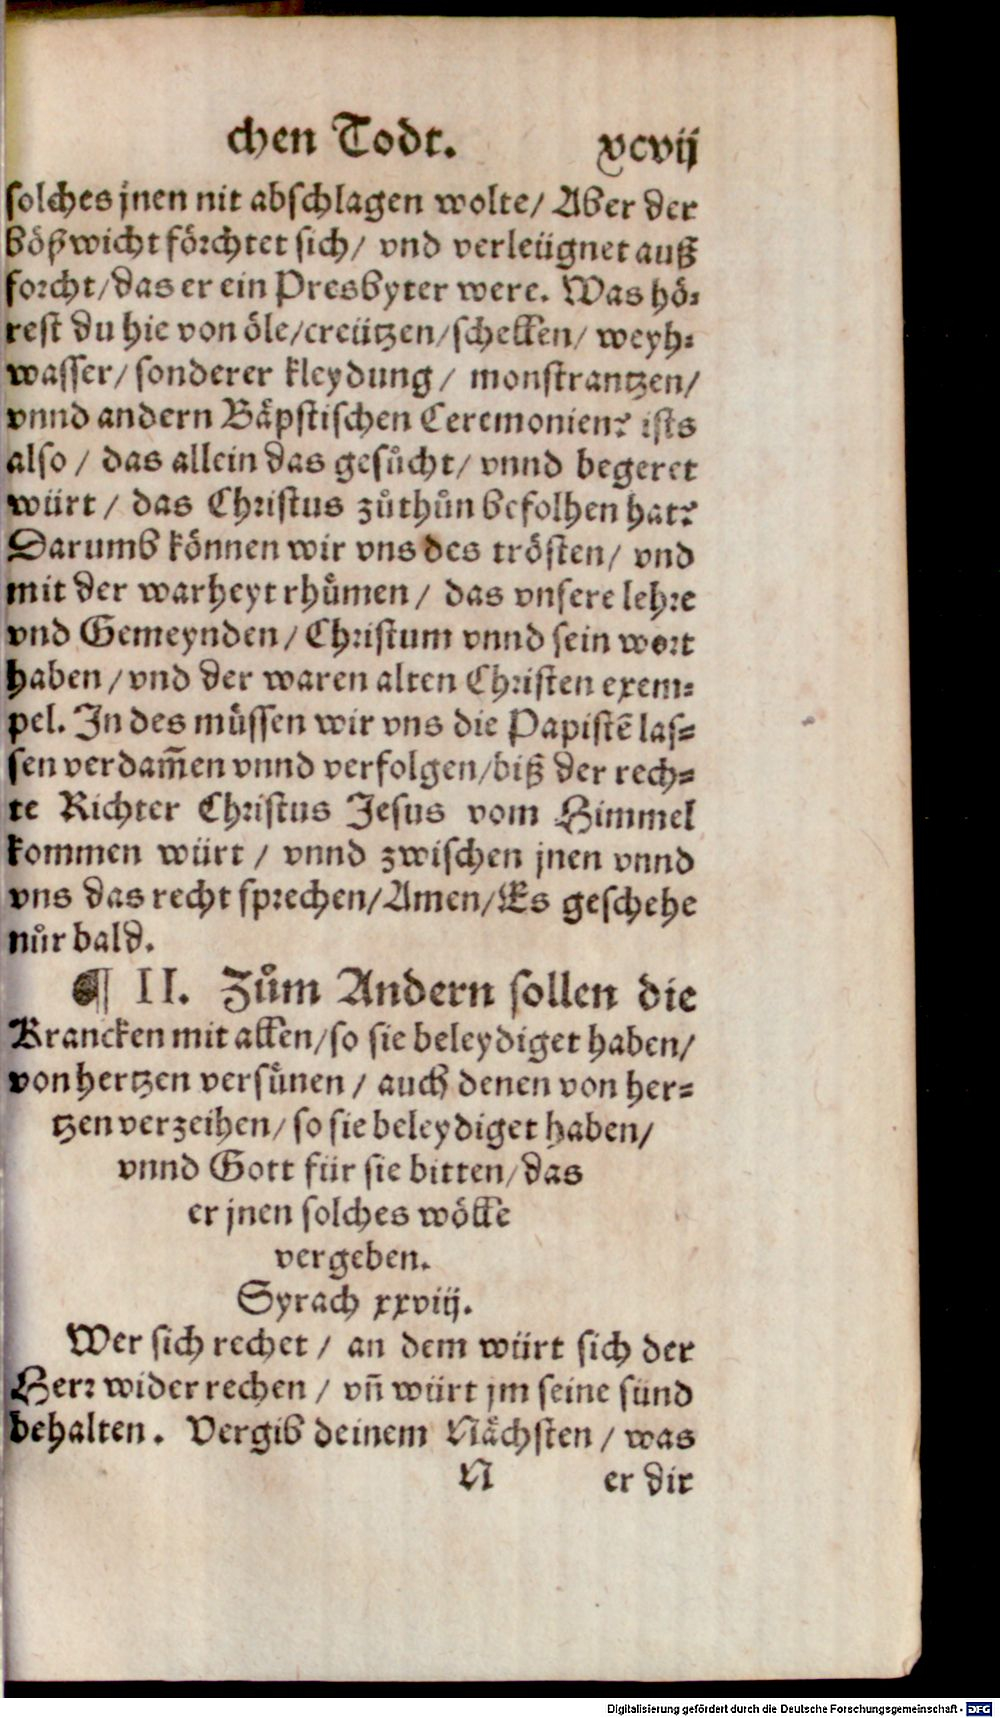 chen Todt. xcvij
solches jnen nit abschlagen wolte/ Aber der
bößwicht förchtet sich/ vnd verleügnet auß
forcht/das er ein Presbyter were. Was hö-
rest du hie von öle/creützen/schellen/ weyh-
wasser/ sonderer kleydung/ monstrantzen/
vnnd andern Bäpstischen Ceremonien? ists
also / das allein das gesůcht/ vnnd begeret
würt / das Christus zůthůn befolhen hat?
Darumb können wir vns des trösten/ vnd
mit der warheyt rhůmen/ das vnsere lehre
vnd Gemeynden/Christum vnnd sein wort
haben/vnd der waren alten Christen exem-
pel. In des müssen wir vns die Papistē las-
sen verdam̄en vnnd verfolgen/biß der rech-
te Richter Christus Jesus vom Himmel
kommen würt / vnnd zwischen jnen vnnd
vns das recht sprechen/Amen/Es geschehe
nůr bald.
¶ II. Zům Andern sollen die
Krancken mit allen/so sie beleydiget haben/
von hertzen versünen / auch denen von her-
tzen verzeihen/ so sie beleydiget haben/
vnnd Gott für sie bitten/das
er jnen solches wölle
vergeben.
Syrach xxviij.
Wer sich rechet / an dem würt sich der
Herr wider rechen / vn̄ würt jm seine sünd
behalten. Vergib deinem Nächsten / was
N er dir
Digitalisierung gefördert durch die Deutsche Forschungsgemeinschaft - DFG